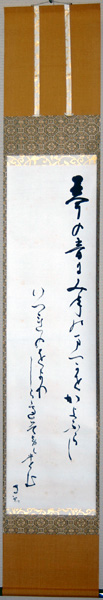 琴の音にみねの松風かよふらし
いつれのをより
しらへそめけむ